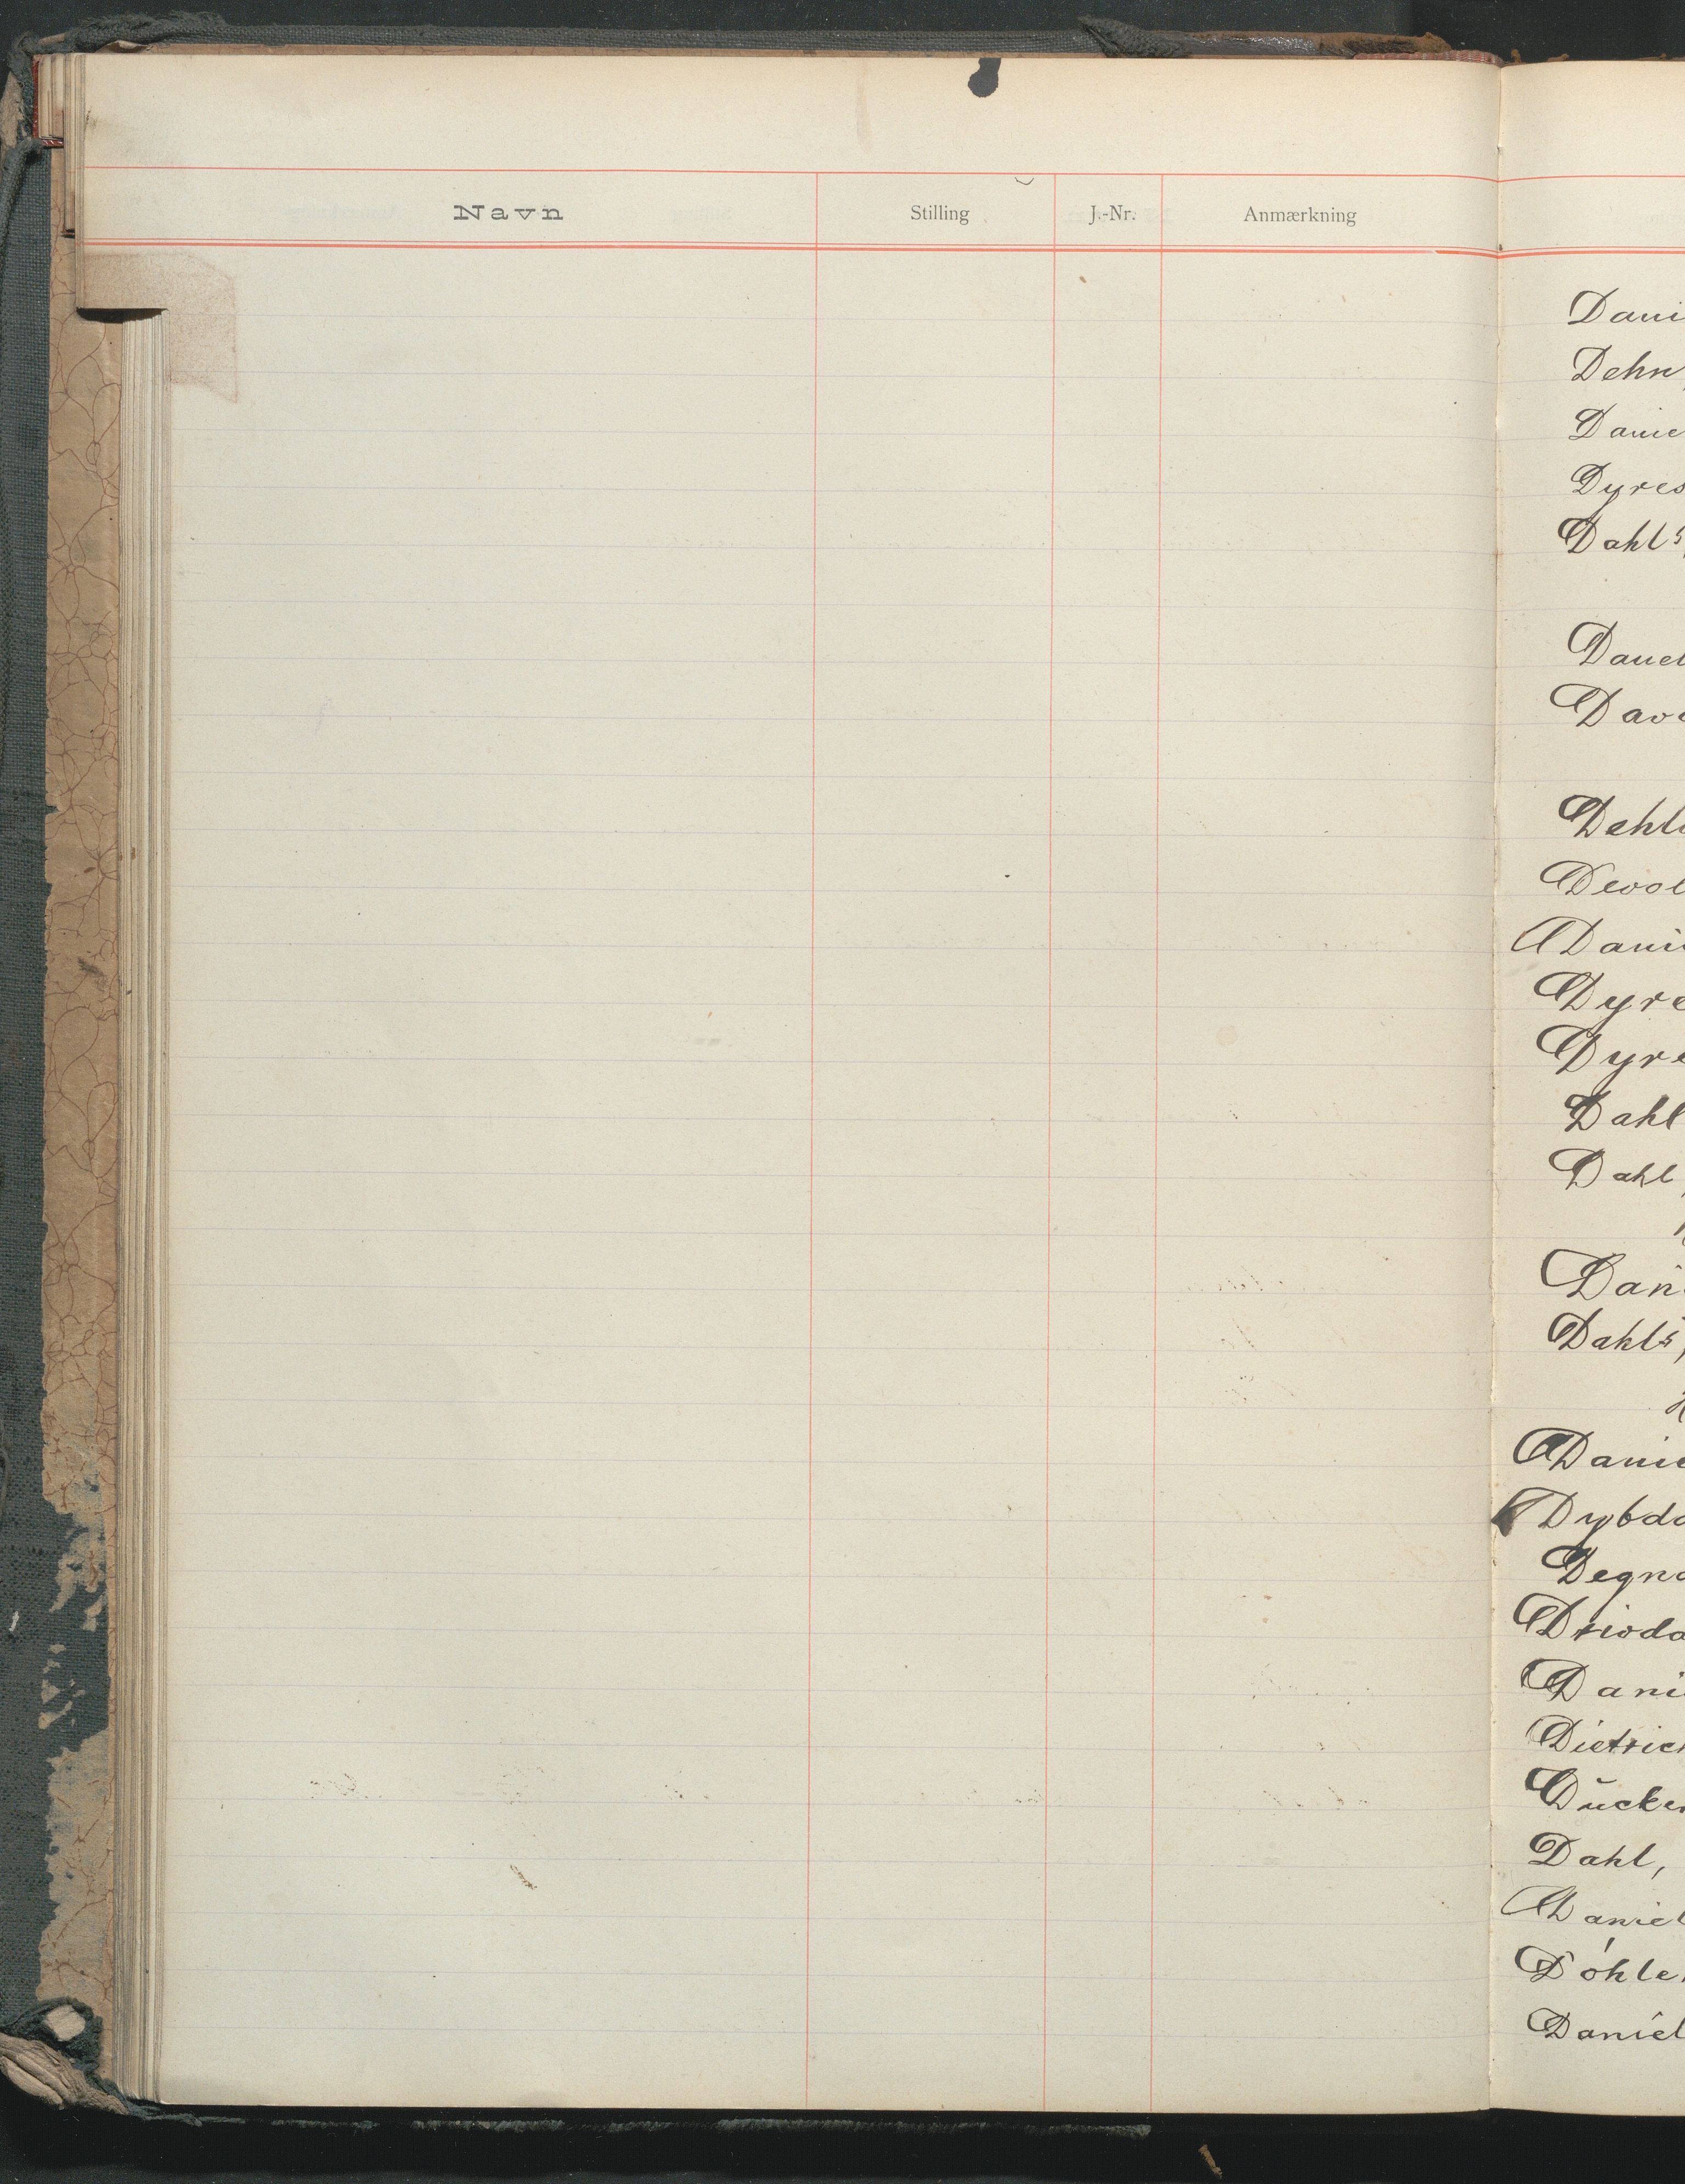 Navn Stilling J.-Nr. Anmærkning
Dani
Dehn,
Danie
Dyres
Dahls,
Danel
Dav
Dehl
Devol
Dani
Dyre
Dyre
Dahl
Dahl,
Dan
Dahls,
Danie
Dybda
Degna
Drivda
Dani
Dietrich
Dücker
Dahl,
Daniel
Döhle
Daniel